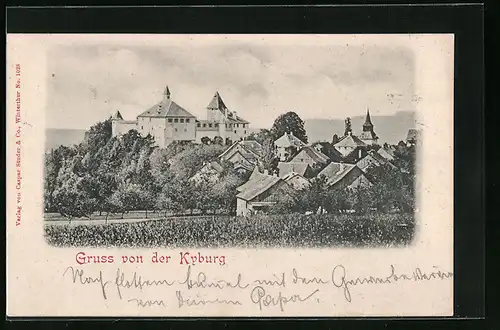 Verlag von Caspar Studer & Co., Winterthur No. 1028
Gruss von der Kyburg
Nach flottem Bummel mit dem Gewerbe Verein
von deinem Papa